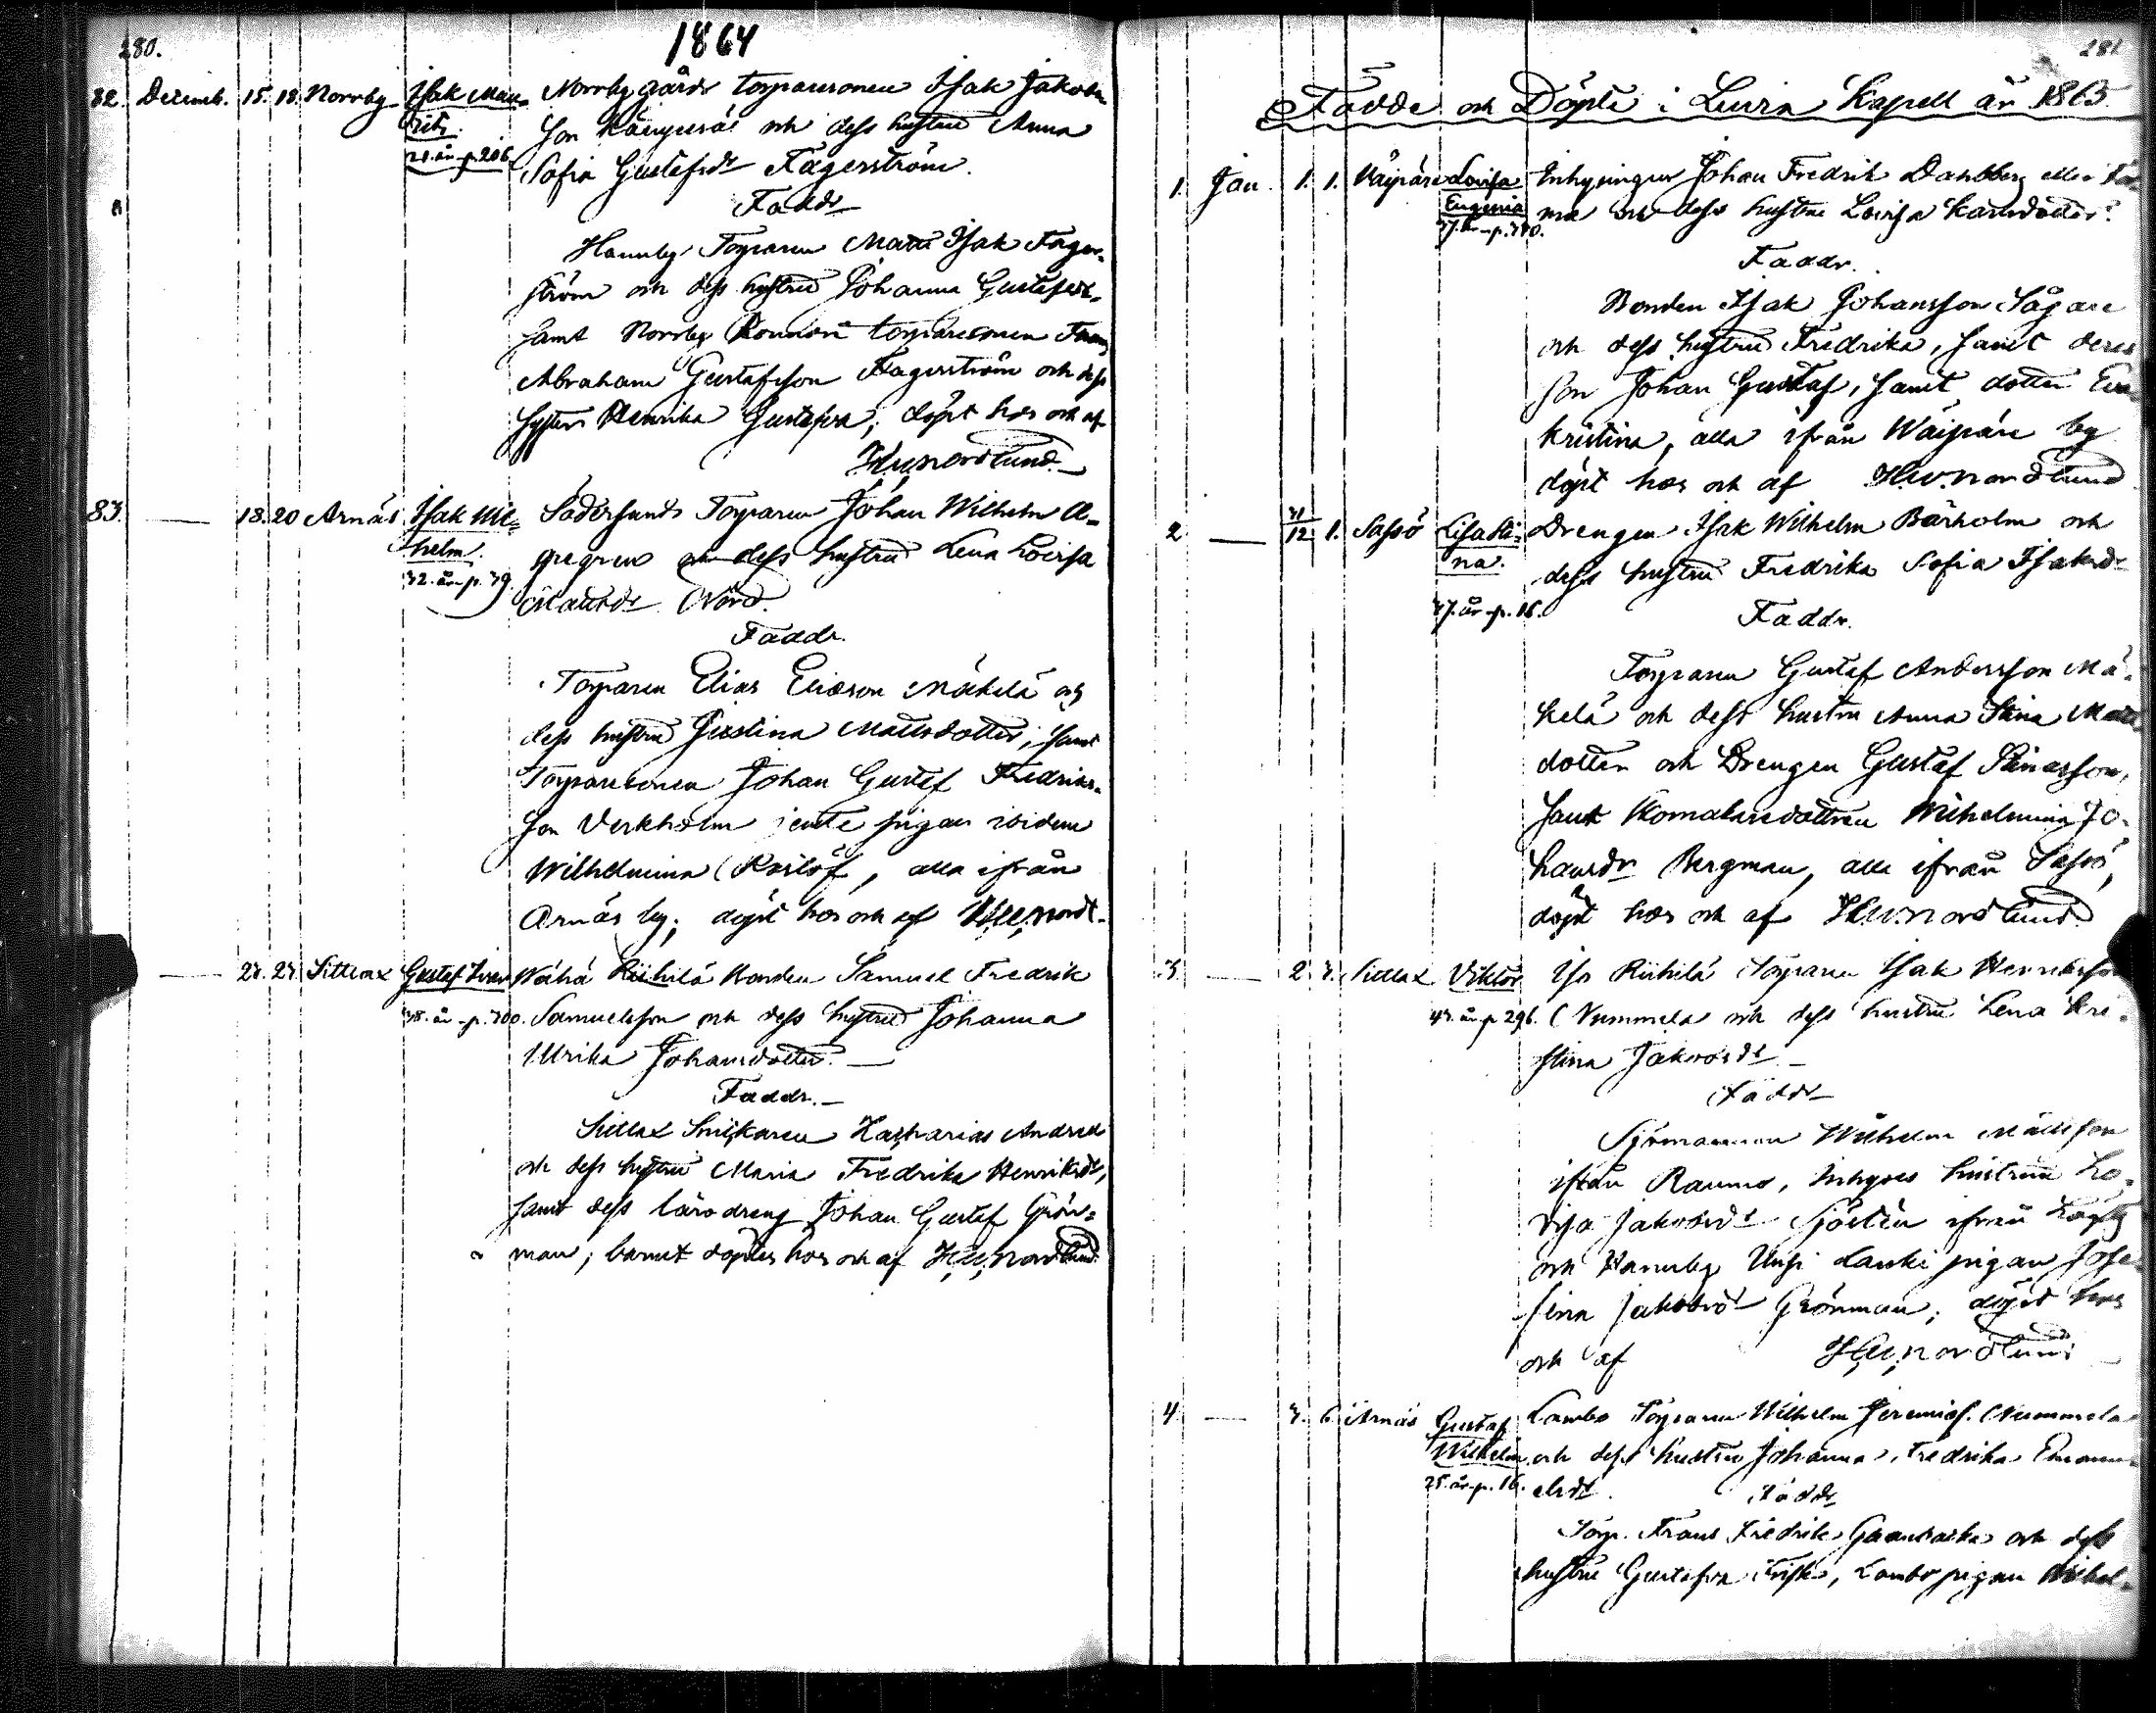 280.
1864
82. Decemb. 15. 18. Norrby Isak Mau- Norrby gårds torparesonen Isak Jakobs-
ritz. son och dess hustru Anna
21. år p. 206. Sofia Gustafsdr Fagerström.
Faddr
Hannby Torparen Isak Fager-
ström och dess hustru Johanna Gustafsdr,
samt Norrby torparesonen
Abraham Gustafsson Fagerström och dess
syster Henrika Gustafva, döpt hos och af
H.W. Nordlund.
83. — 18. 20 Arnäs Isak Wil- Södersunds Torparen Johan Wilhelm A-
helm. gregren och dess hustru Lena Lovisa
32. år p. 39. Nord.
Faddr.
Torparen Elias Eliason Mäkelä och
dess hustru Justina Mattsdotter, samt
Torparesonen Johan Gustaf Fredriks-
son Verkholm jemte pigan ibidem
Wilhelmina Roslöf, alla ifrån
Arnäs by; döpt hos och af H.W. Nordl-
— 27. 27. Sittlax Gustaf Ivar Wähä Riihilä Bonden Samuel Fredrik
38. år p. 300. Samuelsson och dess hustru Johanna
Ulrika Johansdotter. —
Faddr. —
Sittlax Snickaren Zacharias Andrea
och dess hustru Maria Fredrika Henriksdr,
samt dess lärodreng Johan Gustaf Grön-
man; barnet döptes hos och af H.W. Nordlund.
281
Födde och Döpte i Luvia Kapell år 1865
1. Jan. 1. 1. Väipäre Lovisa Inhysingen Johan Fredrik Dahlberg eller
Eugenia och dess hustru Lovisa Karlsdotter.
37. år p. 310.
Faddr.
Bonden Isak Johansson Sågare
och dess hustru Fredrika, samt deras
son Johan Gustaf, samt dotter Eva
Kristina, alla ifrån Wäipäre by
döpt hos och af H.W. Nordlund
2. — 31/12 1. Sassö Lisa Sti- Drengen Isak Wilhelm Bärholm och
na. dess hustru Fredrika Sofia Isaksdr
37. år p. 16.
Faddr.
Torparen Gustaf Andersson Mä-
kelä och dess hustru Anna Stina Matts-
dotter och Drengen Gustaf
samt dottren Wilhelmina Jo-
hansdr Bergman, alla ifrån Sassö,
döpt hos och af H.W. Nordlund
3. — 2. 3. Sittlax Viktor Iso Riihilä Torparen Isak Henriksson
43. år p. 296. Nummela och dess hustru Lena Kri-
stina Jakobsdr —
Faddr
Sjömannen Wilhelm Mattsson
ifrån Raumo, Inhyses hustrun Lo-
visa Jakobsdr Sjösten ifrån
och Hannby Uusi Lauki pigan Jose-
fina Jakobsdr Grönman; döpt hos
och af H.W. Nordlund
4. — 3. 6. Arnäs Gustaf Lambo Torparen Wilhelm Jeremias. Nummela
Wilhelm och dess hustru Johanna Fredrika Emanu-
25. år p. 16. elsdr. Faddr
Torp. Frans Fredrik och dess
hustru Gustafva Frisk, Lambo pigan Wilhel-